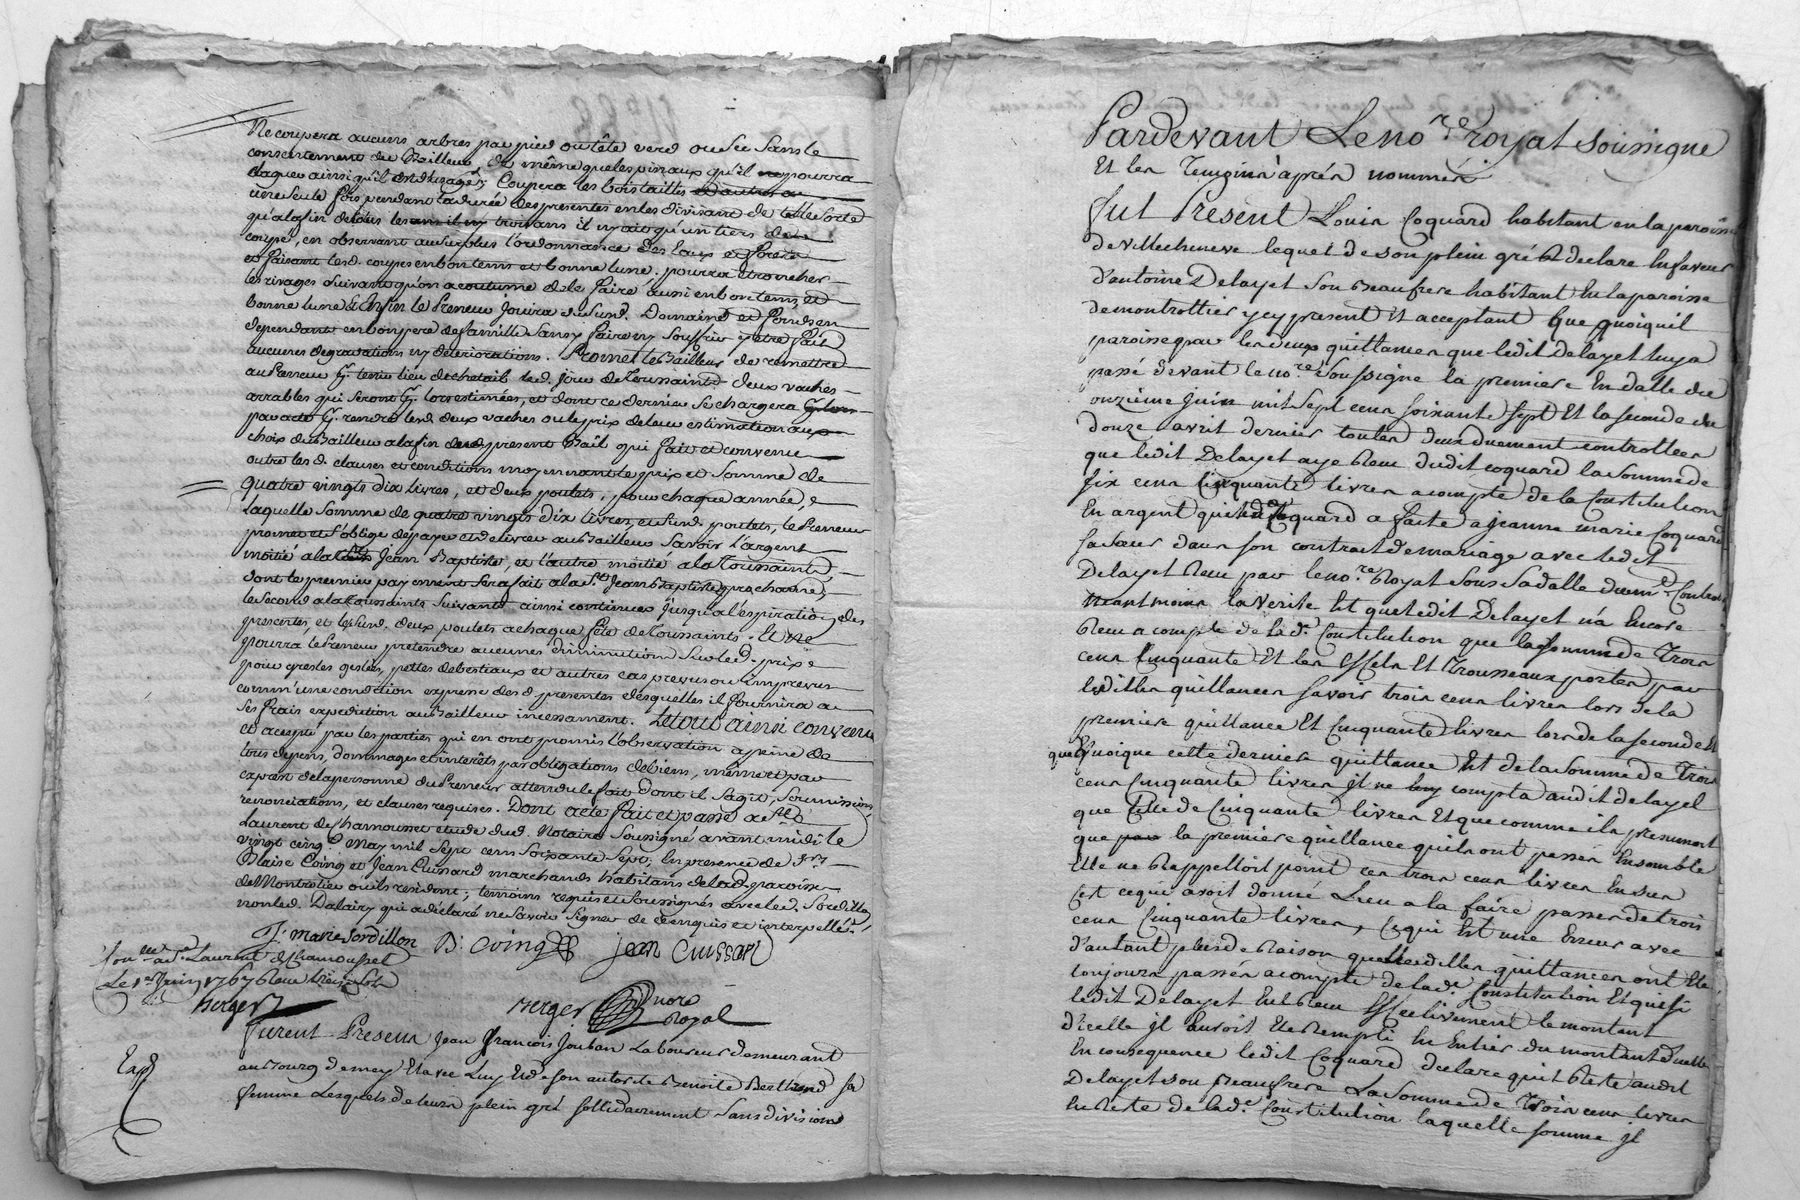 Ne coupera aucuns arbres par pied ou tête verd ou sec sans le
consentement du Bailleur, de même que les pinaux qu'il ne pourra
elaguer ainsi qu'il est d'usage; Coupera les bois taillis
une seule fois pendant la durée des presentes en les divisant de telle sorte
qu'a la fin il n'y ait qu'un tiers de
coupé, en observant au surplus l'ordonnance des Eaux et forêts
et faisant lesd. coupes en bon tems et bonne lune. pourra etroncher
les rivages suivant qu'on a coutume de le faire aussi en bon tems et
bonne lune Enfin le Preneur jouira dususd. Domaine et fonds en
dependants en bon pere de famille sans y faire ny souffrir y etre fait
aucunes degradations ny deteriorations. Promet le Bailleur de remettre
au Preneur tenir lieu de chetail led. jour de Toussaints deux vaches
arrables qui seront lors estimées, et dont ce dernier se chargera
par acte rendre lesd. deux vaches ou le prix de leur estimation aux
choix du Bailleur a la fin du present Bail qui fait et convenu
outre les d. clauses et conditions moyennant le prix et somme de
quatre vingts dix livres, et deux poulets, pour chaque année,
Laquelle somme de quatre vingts dix livres, et susd. poulets, le Preneur
promet et s'oblige de payer et delivrer au Bailleur Savoir l'argent
moitié a la Jean Baptiste, et l'autre moitié a la Toussaints,
dont le premier payement sera fait a la St. Jean Baptiste prochaine,
le second a la Toussaints suivants ainsi continuer jusqu'a l'expiration des
presentes, et lesusd. deux poulets a chaque fête de Toussaints. Et ne
pourra le Preneur pretendre aucunes diminutions sur led. prix
pour gresles gelées, pertes de bestiaux et autres cas prevus ou imprevus
comm'une condition expresse des d. presentes desquelles il fournira a
ses frais expedition au Bailleur incessament. Le tout ainsi convenu
et accepté par les parties qui en ont promis l'observation a peine de
tous depens, dommages et interêts par obligations de biens, même et par
corps de la personne du Preneur attendu le fait dont il s'agit, soumissions,
renonciations, et clauses requises. Dont acte fait et passé a St.
Laurent de Chamousset etude dud. Notaire Soussigné avant midi le
vingt cinq May mil sept cens soixante sept, En presence de Srs
Blaise Coing et Jean Cuissard marchands habitans de lad. paroisse
de Montrotier ou ils resident; temoins requis et soussignés avec led. Sordillon,
non led. Dalairy qui a déclaré ne savoir signer de ce enquis et interpellé.
J. marie Sordillon B. Coing jean Cuissard
Con.llé a St. Laurent de Chamousset
Le 1er Juin 1767 Reçu
Berger
Berger nore Royal
Furent Presens Jean François Jouban Laboureur demeurant
au Bourg de mey Et avec Luy Et de son autorité Benoite Berthond sa
femme Lesquels de leurs plein gré sollidairement sans division
Exp.
Pardevant Le no.re royal soussigné
Et les Temoins après nommés
Fut Present Louis Coquard habitant en la paroisse
de villecheneve lequel de son plein gré a declaré En faveur
d'antoine Delayet son Beaufrere habitant En la paroisse
de montrottier y cy present Et acceptant que quoiquil
paroisse par les deux quittances que ledit Delayet luy a
passé devant le no.re Soussigné la premiere En datte du
onzieme juin mil sept cens soixante sept Et la seconde du
douze avril dernier toutes deux duement controllées
que ledit Delayet aye Recu dudit coquard la somme de
six cens cinquante livres acompte de la Constitution
En argent que led. Coquard a faite a jeanne marie Coquard
sa sœur dans son contrat de mariage avec ledit
Delayet Recu par le no.re Royal soussigné
Neantmoins la verité Est que ledit Delayet n'a Encore
Recu a compte de lad.e Constitution que la somme de Trois
cens Cinquante Et les Effets Et Trousseaux portés par
lesdittes quittances savoir trois cens livres lors de la
premiere quittance Et Cinquante livres lors de la seconde Et
que quoique cette derniere quittance Est de la somme de Trois
cens Cinquante livres jl ne luy compta audit delayet
que Celle de Cinquante livres Et que comme ils presument
que la premiere quittance quils ont passée Ensemble
Elle ne Rappelloit point ces trois cens livres En sus
Cest ce qui avoit donné Lieu a la faire passer de trois
cens Cinquante livres, ce qui Est une Erreur avec
d'autant plus de Raison que lesdittes quittances ont Eté
toujours passées acompte de lad.e Constitution Et que si
ledit Delayet Eut Recu Effectivement le montant
d'icelle jl auroit Eté Remply En Entier du montant d'icelle
En consequence ledit Coquard declare qu'il Reste audit
Delayet son Beaufrere La somme de Trois cens livres
En Reste de lad.e Constitution laquelle somme jl